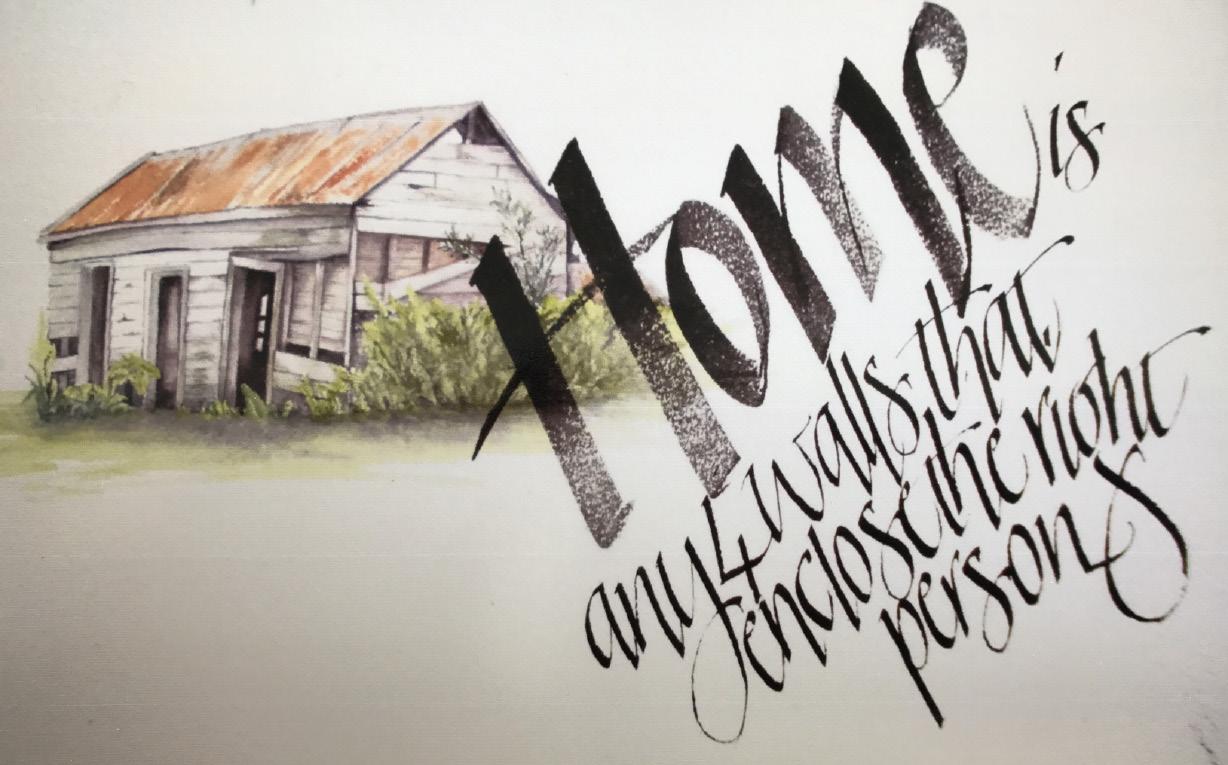 Home is
any 4 walls that
enclose the right
persons